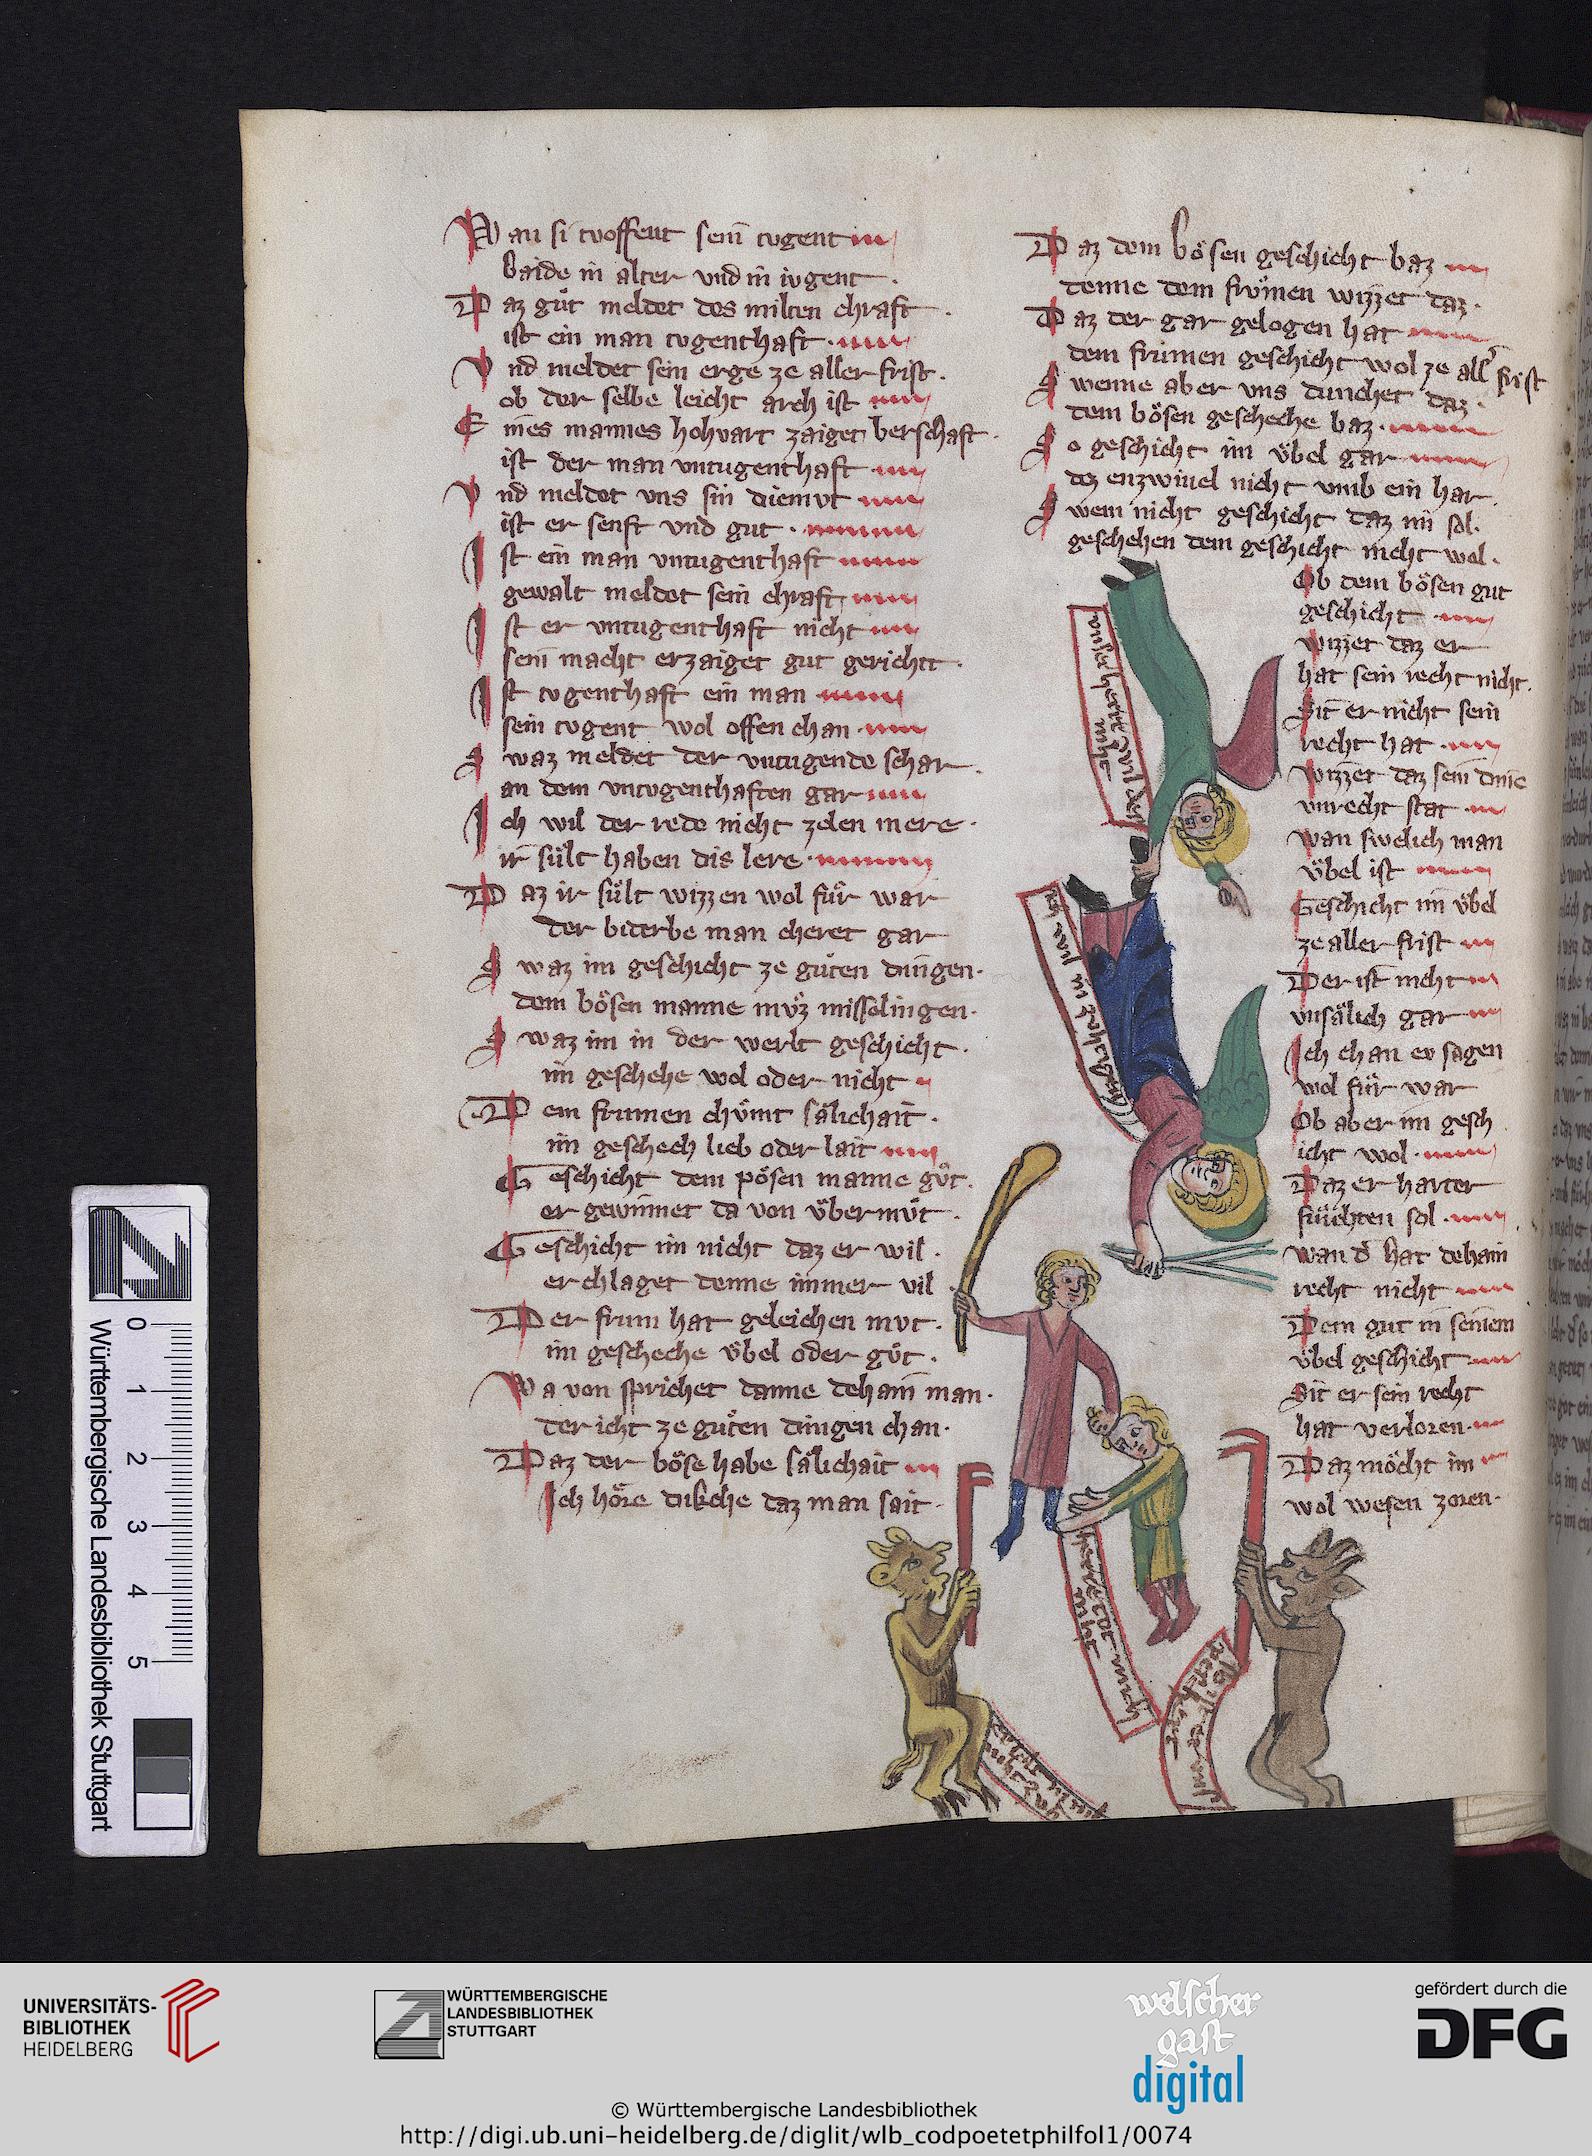 Wan si tvoffent sein tvgent
baide in alter vnd in ivgent .
Daz gůt meldet des milten chraft .
ist ein man tvgenthaft .
Vnd meldet sein erge ze aller frist .
ob der selbe leicht arch ist
Eines mannes hohvart zaiget herschaft .
ist der man vntugenthaft
Vnd meldet vns sin diemvt
ist er senft vnd gut .
Ist ein man vntugenthaft
gewalt meldet sein chraft
Ist er vntugenthaft nicht
sein macht erzaiget gut gericht .
Ist tvgenthaft ein man
sein tvgent wol offen chan .
Swaz meldet der vntugende schar .
an dem vntvgenthaften gar
Ich wil der rede nicht zelen mere .
ir sült haben dis lere .
Daz ir sült wizzen wol für war
der biderbe man cheret gar
Swaz im geschicht ze güten dingen .
dem bösen manne mvz misselingen .
Swaz im in der werlt geschicht .
im geschehe wol oder nicht
Dem frumen chümt sälichait .
im geschech lieb oder lait
Geschicht dem pösen manne gůt .
er gewinnet da von übermůt .
Geschicht im nicht daz er wil .
er chlaget denne immer vil
Der frum hat geleichen mvt .
im geschehe übel oder gůt .
Wa von sprichet danne dehain man .
der icht ze güten dingen chan .
Daz der böse habe sälichait
Ich höre dikche daz man sait .
Daz dem bösen geschicht baz
denne dem frümen wizzet daz .
Daz der gar gelogen hat
dem frumen geschicht wol ze aller frist
Swenne aber vns dunchet daz .
dem bösen geschehe baz .
So geschicht im übel gar
dez enzwiuel nicht vmb ein har .
Swem nicht geschicht daz im sol .
geschehen dem geschicht nicht wol .
Ob dem bösen gut
geschicht
wizzet daz er
hat sein recht nicht .
Sit er nicht sein
recht hat
wizzet daz sein dinc
vnrecht stat
wan swelich man
übel ist
Geschicht im übel
ze aller frist
Der ist nicht
vnsälich gar
Ich chan ev sagen
wol für war
Ob aber im gesch
icht wol .
Daz er harter
fürchten sol .
wan der hat dehain
recht nicht
Dem gut in seinem
übel geschicht
Sit er sein recht
hat verloren .
Daz möcht im
wol wesen zoren .
herre tot mich
niht
Württembergische Landesbibliothek Stuttgart
0 1 2 3 4 5
UNIVERSITÄTS-
BIBLIOTHEK
HEIDELBERG
WÜRTTEMBERGISCHE
LANDESBIBLIOTHEK
STUTTGART
welscher
gast
digital
gefördert durch die
DFG
© Württembergische Landesbibliothek
http://digi.ub.uni-heidelberg.de/diglit/wlb_codpoetetphilfol1/0074